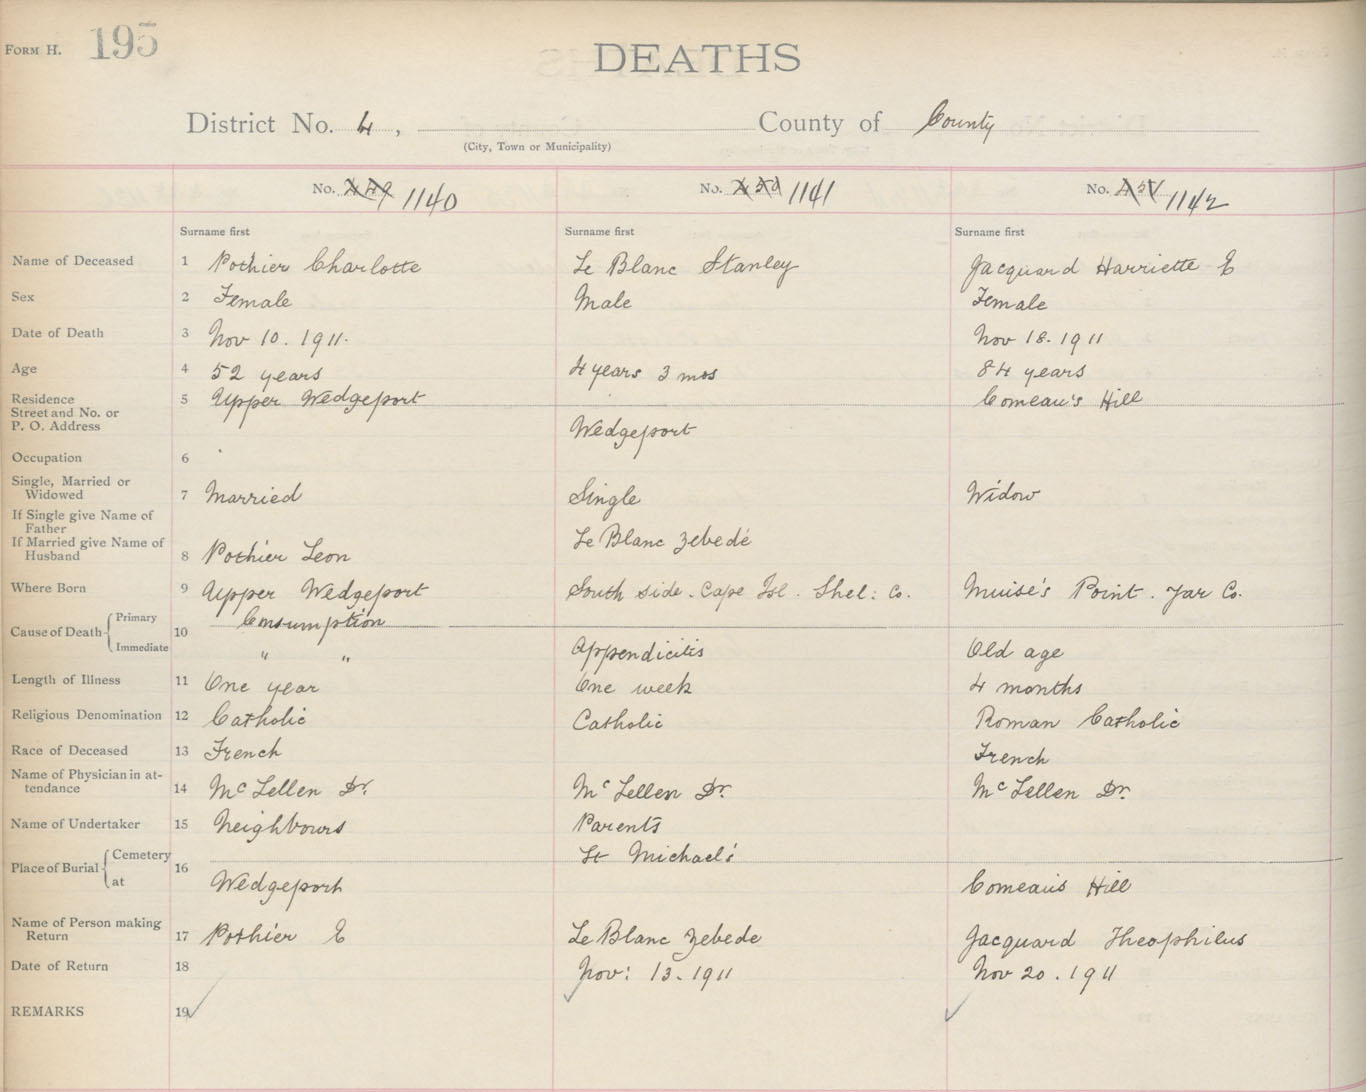 FORM H. 195
DEATHS
District No. 4, County of County
(City, Town or Municipality)
No. 449 1140 No. 450 1141 No. 451 1142
Surname first Surname first Surname first
Name of Deceased 1 Pothier Charlotte Le Blanc Stanley Jacquard Harriette E
Sex 2 Female Male Female
Date of Death 3 Nov 10. 1911. Nov 18. 1911
Age 4 52 years 4 years 3 mos 84 years
Residence 5 Upper Wedgeport Comeau's Hill
Street and No. or
P. O. Address Wedgeport
Occupation 6
Single, Married or
Widowed 7 Married Single Widow
If Single give Name of
Father
If Married give Name of Le Blanc Zebedé
Husband 8 Pothier Leon
Where Born 9 Upper Wedgeport South side. Cape Isl. Shel: Co. Muise's Point. Yar Co.
Cause of Death Primary 10 Consumption
Immediate " " Appendicitis Old age
Length of Illness 11 One year One week 4 months
Religious Denomination 12 Catholic Catholic Roman Catholic
Race of Deceased 13 French French
Name of Physician in at-
tendance 14 McLellen Dr. McLellen Dr. McLellen Dr.
Name of Undertaker 15 Neighbours Parents
Place of Burial Cemetery 16 St Michael's
at Wedgeport Comeau's Hill
Name of Person making
Return 17 Pothier E Le Blanc Zebede Jacquard Theophilus
Date of Return 18 Nov: 13. 1911 Nov 20. 1911
REMARKS 19